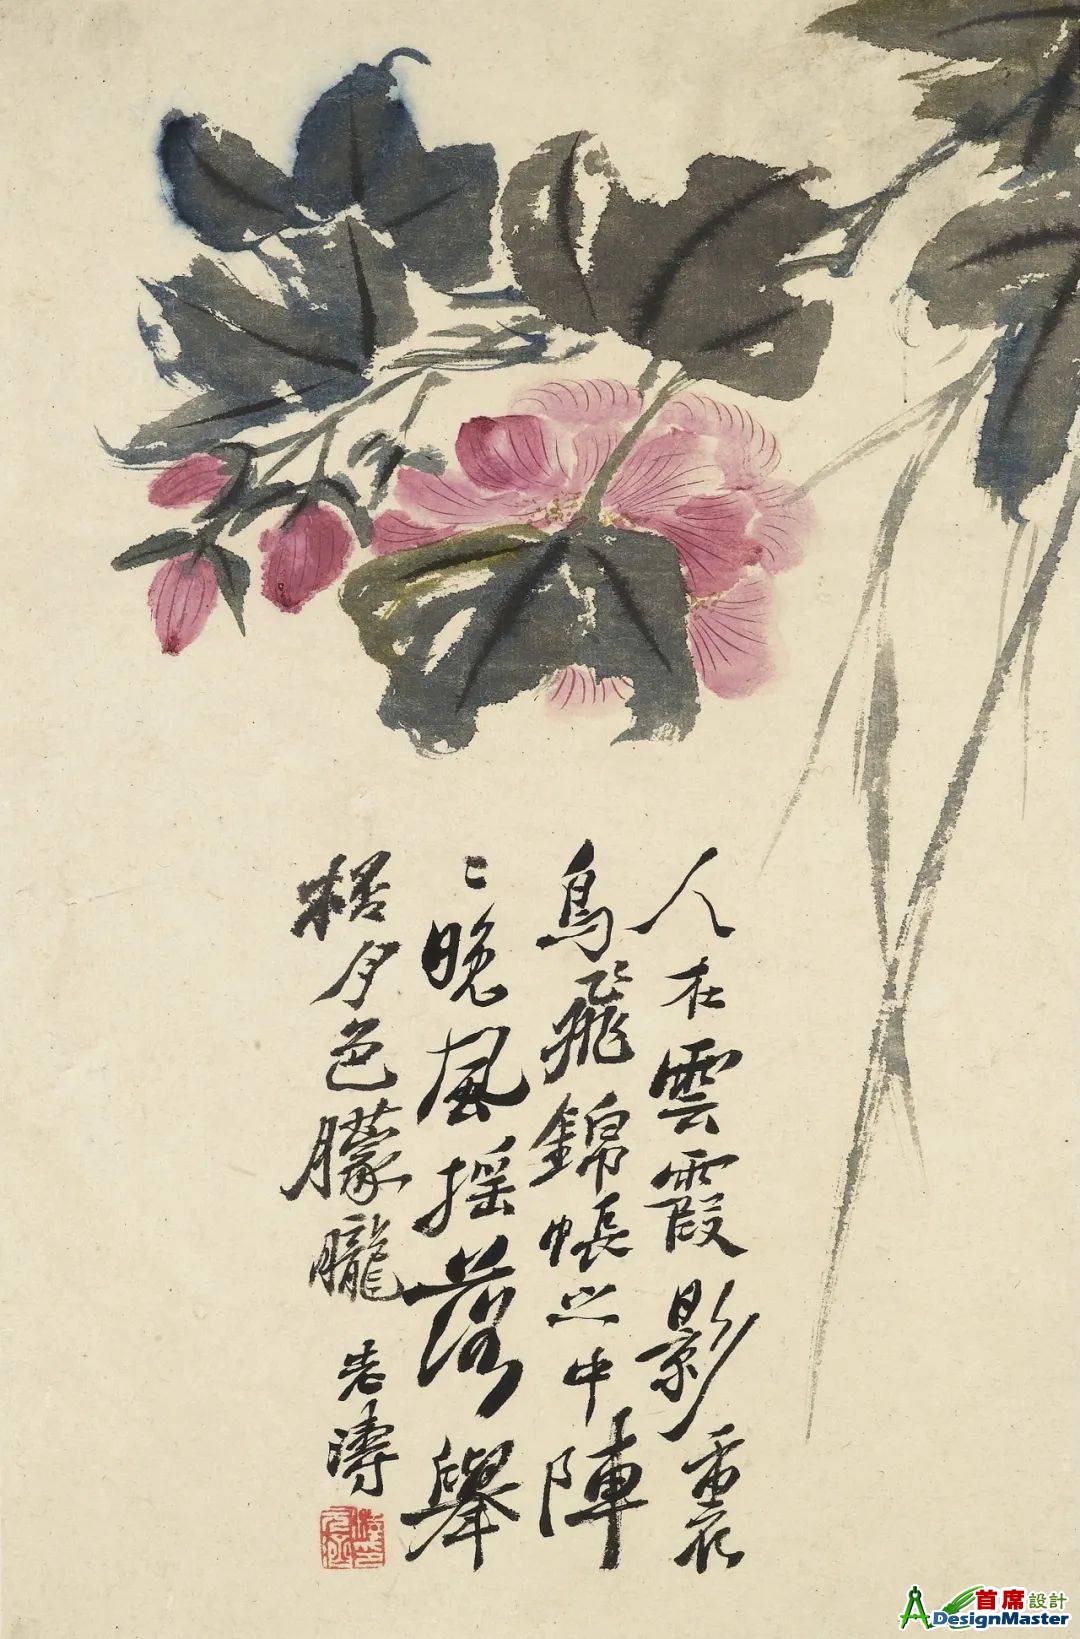 人在雲霞影裏
鳥飛錦帳之中陣
〻晚風摇落舉
楷夕色朦朧
老濤
首席設計
DesignMaster